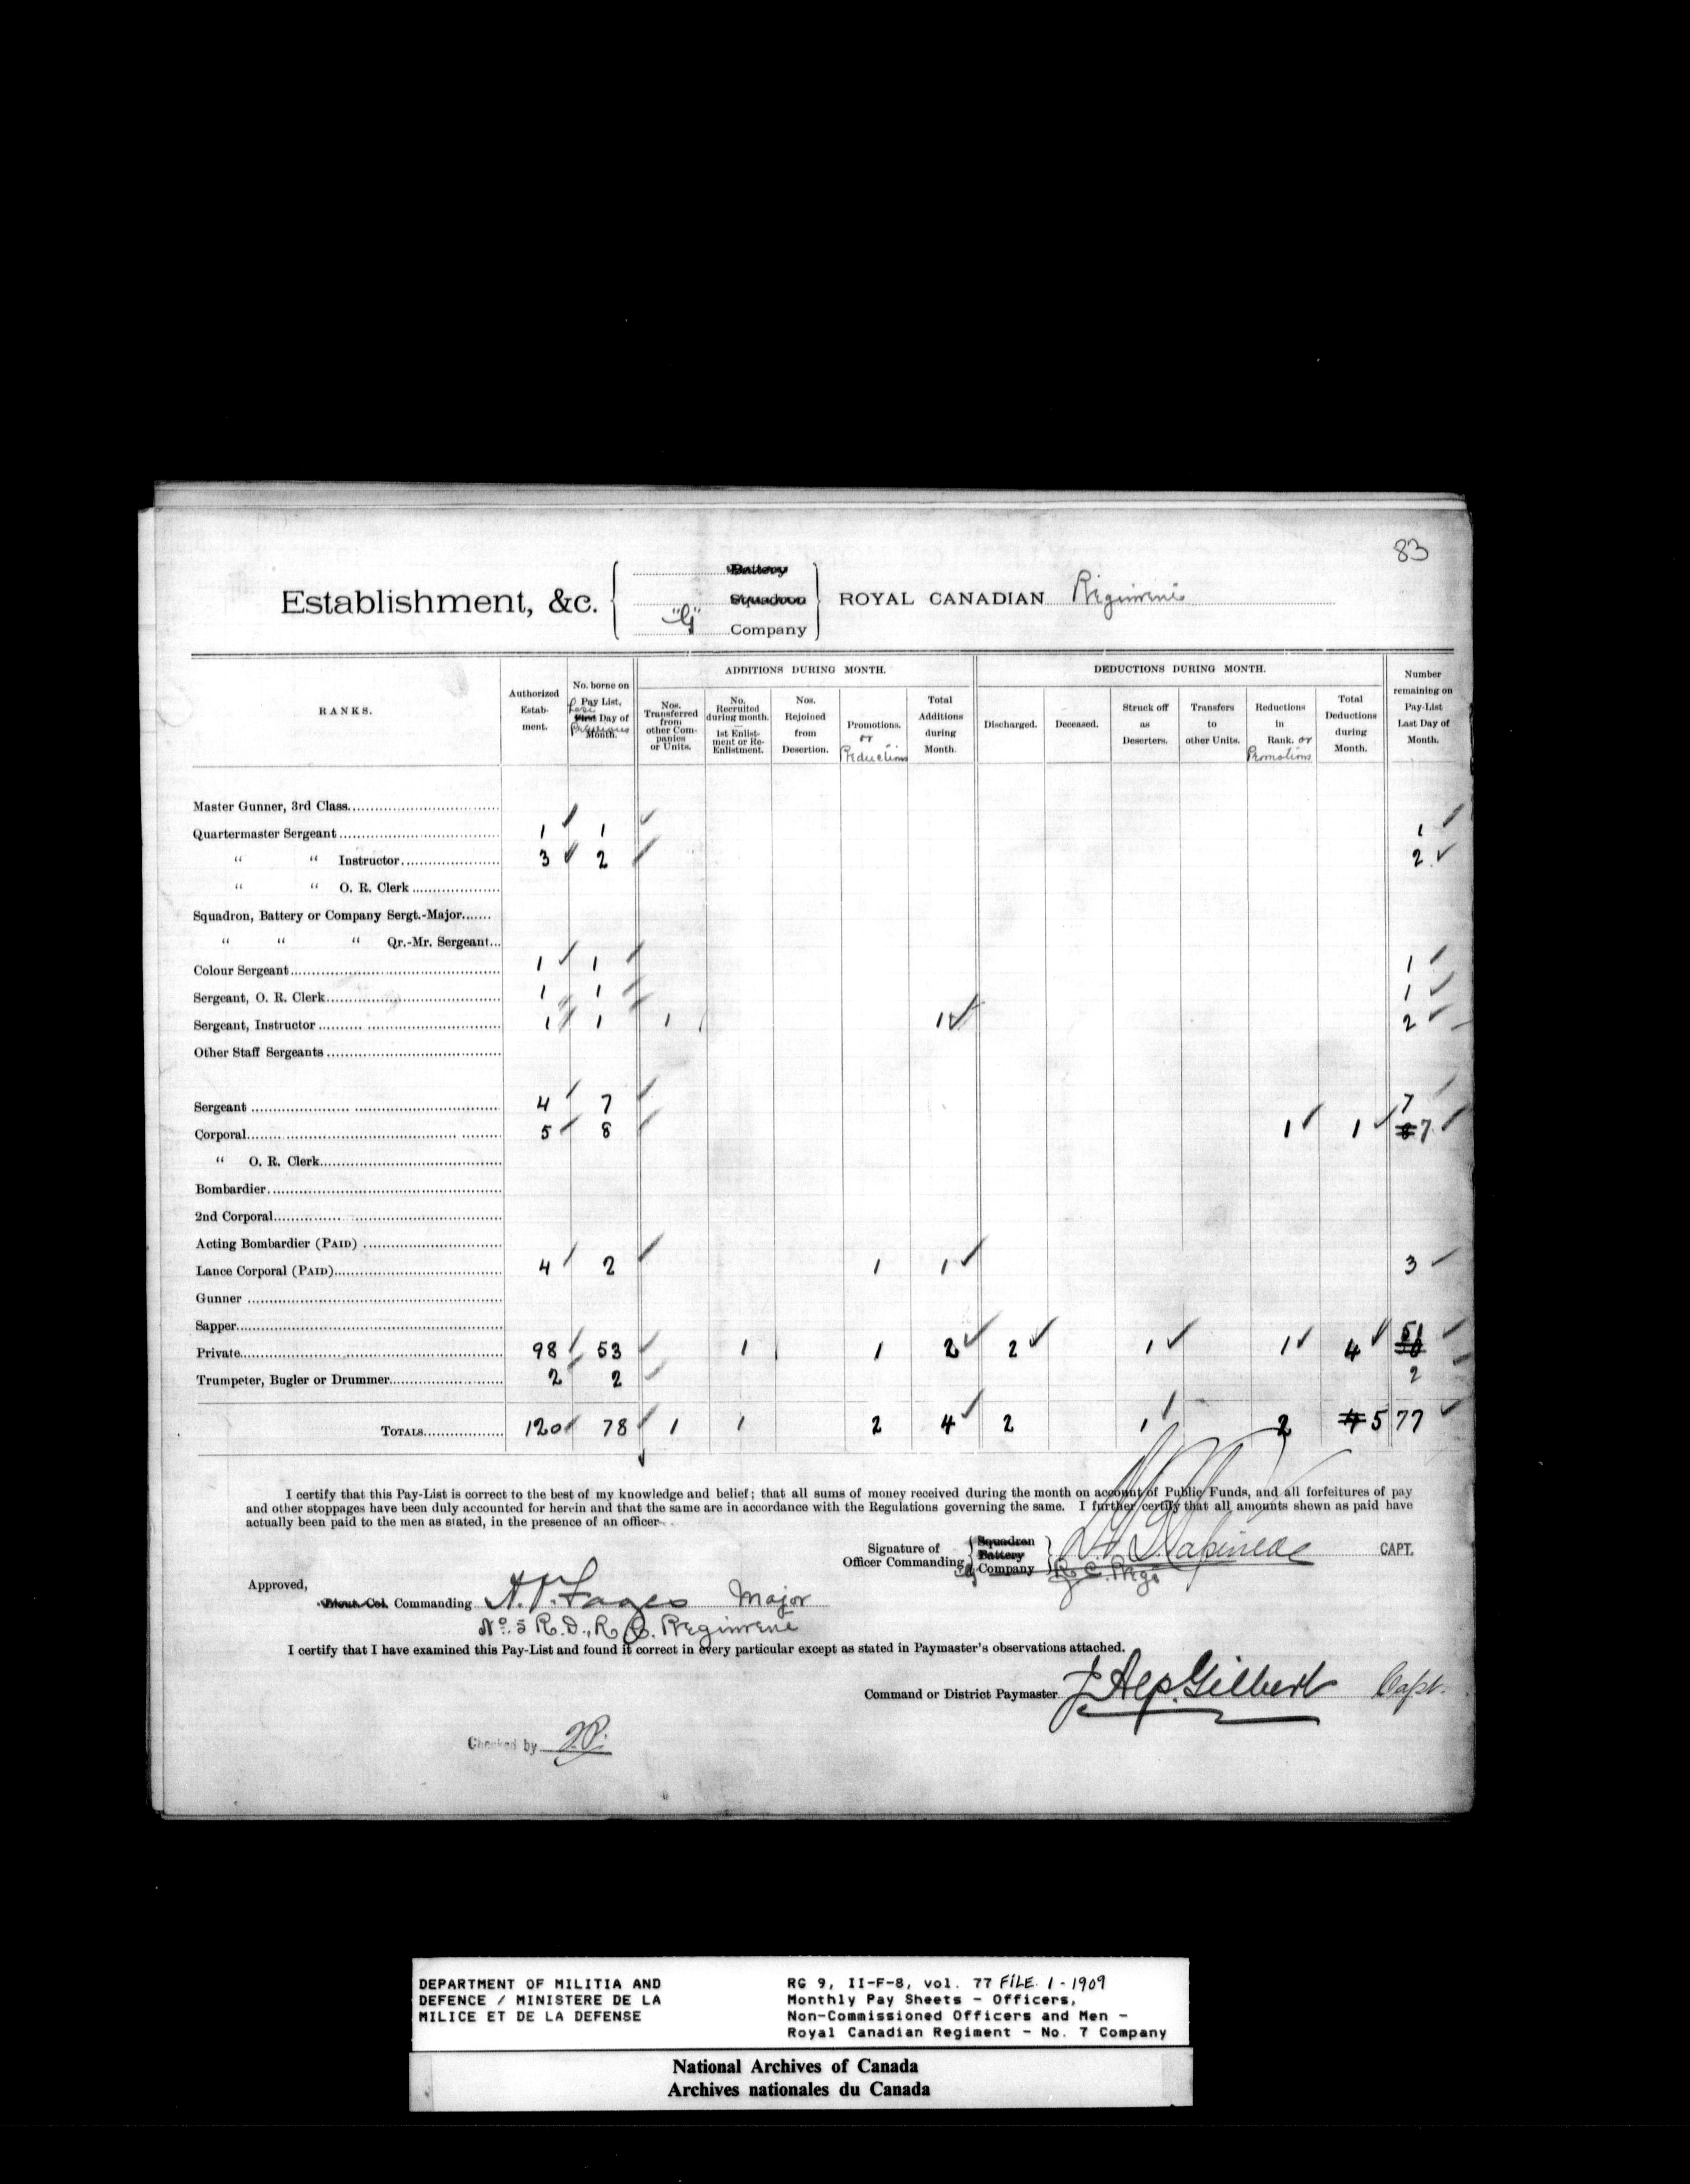 83
Establishment, &c.
Battery
Squadron
"G" Company
ROYAL CANADIAN Regiment
RANKS.
Authorized Estab- ment.
No. borne on Pay List, Last First Day of Previous Month.
ADDITIONS DURING MONTH.
Nos. Transferred from other Com- panies or Units.
No. Recruited during month. — 1st Enlist- ment or Re- Enlistment.
Nos. Rejoined from Desertion.
Promotions. or Reductions
Total Additions during Month.
DEDUCTIONS DURING MONTH.
Discharged.
Deceased.
Struck off as Deserters.
Transfers to other Units.
Reductions in Rank. or Promotions
Total Deductions during Month.
Number remaining on Pay-List Last Day of Month.
Master Gunner, 3rd Class
Quartermaster Sergeant 1 1 1
" " Instructor 3 2 2
" " O. R. Clerk
Squadron, Battery or Company Sergt.-Major
" " " Qr.-Mr. Sergeant
Colour Sergeant 1 1 1
Sergeant, O. R. Clerk 1 1 1
Sergeant, Instructor 1 1 1 1 2
Other Staff Sergeants
Sergeant 4 7 7
Corporal 5 8 1 1 8 7
" O. R. Clerk
Bombardier
2nd Corporal
Acting Bombardier (PAID)
Lance Corporal (PAID) 4 2 1 1 3
Gunner
Sapper
Private 98 53 1 1 2 2 1 1 4 51
Trumpeter, Bugler or Drummer 2 2 2
TOTALS 120 78 1 1 2 4 2 1 2 4 5 77
I certify that this Pay-List is correct to the best of my knowledge and belief; that all sums of money received during the month on account of Public Funds, and all forfeitures of pay
and other stoppages have been duly accounted for herein and that the same are in accordance with the Regulations governing the same. I further certify that all amounts shewn as paid have
actually been paid to the men as stated, in the presence of an officer
Signature of Officer Commanding
Squadron
Battery
Company
CAPT.
R. C. Regt
Approved,
Lieut.-Col. Commanding Major
No. 5 R.D., R.C. Regiment
I certify that I have examined this Pay-List and found it correct in every particular except as stated in Paymaster's observations attached.
Command or District Paymaster J. Alp. Gilbert Capt.
Checked by
DEPARTMENT OF MILITIA AND
DEFENCE / MINISTERE DE LA
MILICE ET DE LA DEFENSE
RG 9, II-F-8, vol. 77 FILE. 1 - 1909
Monthly Pay Sheets - Officers,
Non-Commissioned Officers and Men -
Royal Canadian Regiment - No. 7 Company
National Archives of Canada
Archives nationales du Canada